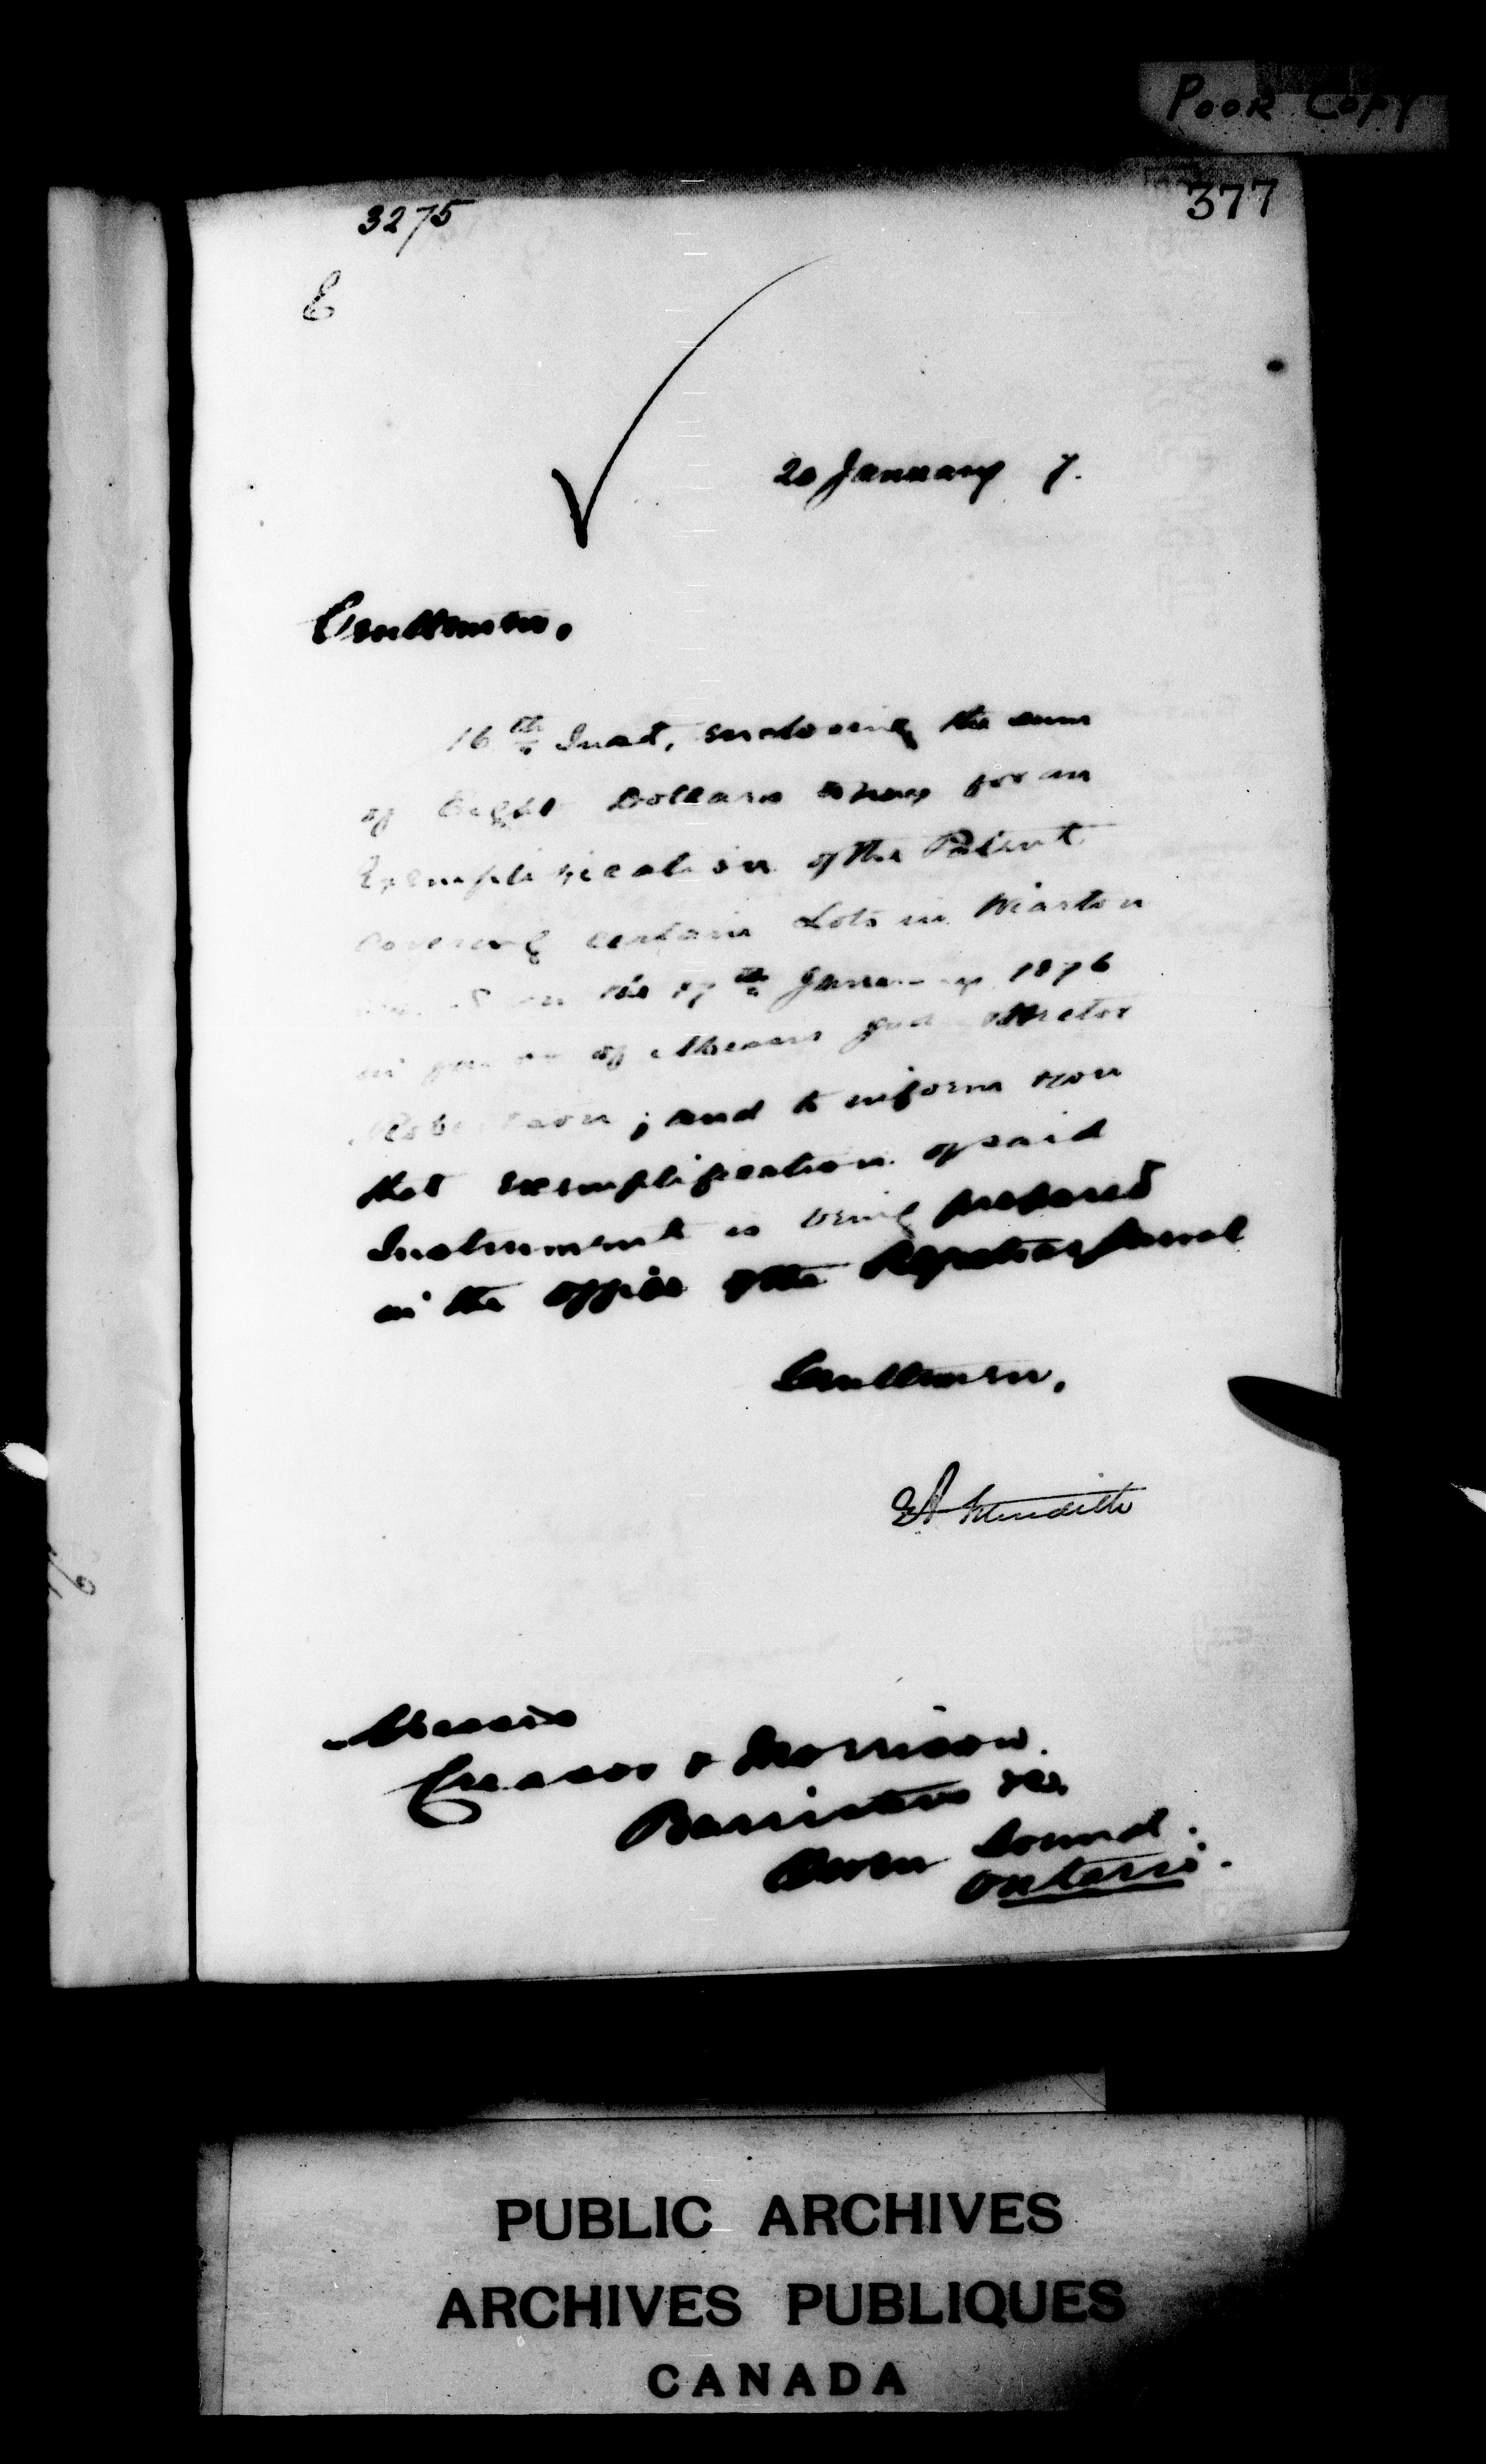 POOR COPY
377
3275
E
20 January 7.
Gentlemen,
16th Inst, enclosing the sum
of Eight Dollars to pay for an
Exemplification of the Patent
covering certain Lots in Wiarton
the 17th January 1876
in favor of Messrs and
Robertson; and to inform you
that exemplification of said
Instrument is being prepared
in the office of the Registrar General
Gentlemen,
EA Meredith
Messrs
Creasor & Morrison.
Barristers &c.
Owen Sound.
Ontario.
PUBLIC ARCHIVES
ARCHIVES PUBLIQUES
CANADA